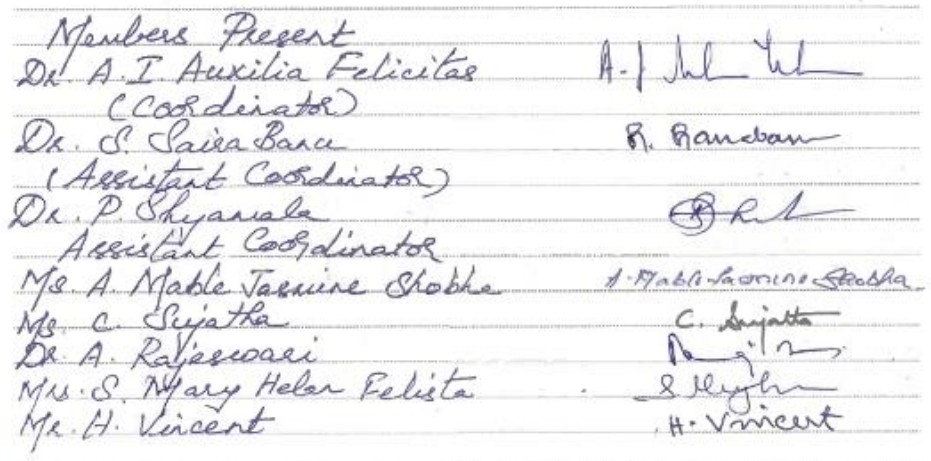 Members Present
Dr. A. I. Auxilia Felicitas
(Coordinator)
Dr. S. Saira Banu R. Ranebam
(Assistant Coordinator)
Dr. P. Shyamala
Assistant Coordinator
Ms. A. Mable Jasmine Shobha A. Mable Jasmine Shobha
Ms. C. Sujatha C. Sujatha
Dr A. Rajeswari
Mrs. S. Mary Helan Felista
Mr. H. Vincent H. Vincent